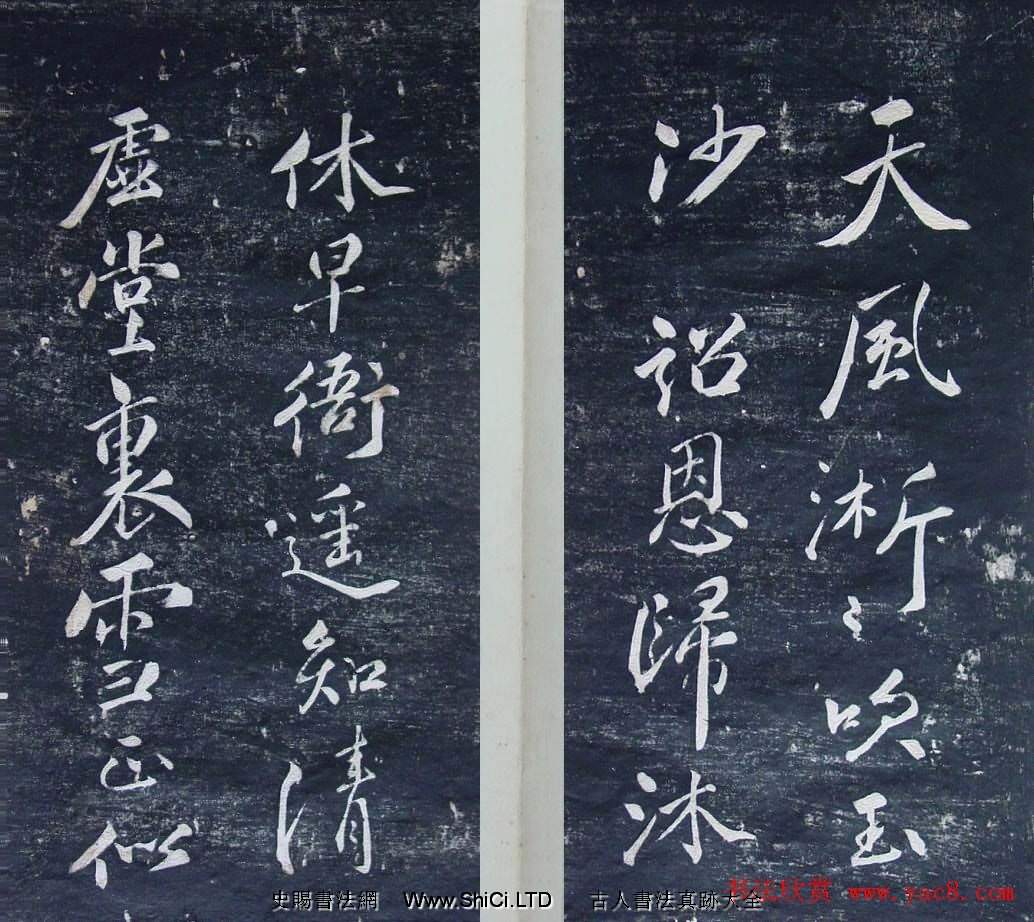 天風淅〻吹玉
沙詔恩歸沐
休早衙遥知清
虛堂裏雪正似
史賜書法網 Www.ShiCi.LTD 古人書法真跡大全
书法欣赏 www.yac8.com